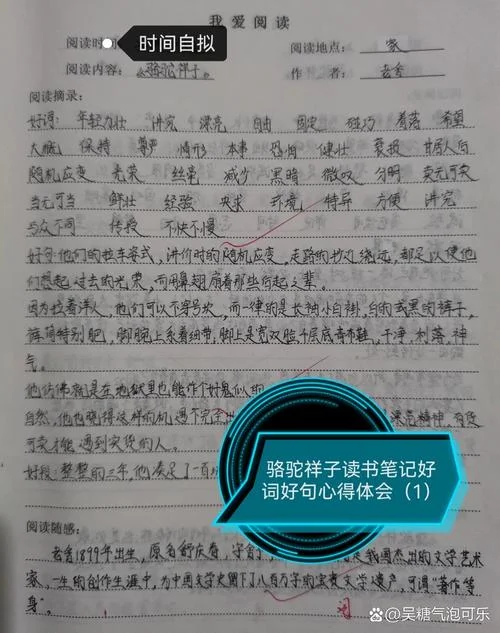 我爱阅读
阅读时 时间自拟 阅读地点: 家
阅读内容:《骆驼祥子》 作者: 老舍
阅读摘录:
好词: 年轻力壮 讲究 漂亮 自由 固定 碰巧 着落 希望
大概 保持 尊严 情形 本事 恐惧 健壮 衰损 甘居人后
随机应变 光荣 丝毫 减少 黑暗 微叹 分明 卖无可卖
当无可当 鲜壮 经验 央求 环境 特异 方便 讲究
与众不同 传授 不快不慢
好句:他们的拉车姿式,讲价时的随机应变,走路的抄近绕远,都足以使他
们想起过去的光荣,而用鼻翅扇着那些后起之辈。
因为拉着洋人,他们可以不穿号坎,而一律的是长袖小白褂,白的或黑的裤子,
裤筒特别肥,脚腕上系着细带,脚上是宽双脸千层底青布鞋,干净,利落,神
气。
他仿佛就是在地狱里也能作个好鬼似的
自然,他也晓得这样的机遇不完全出 漂亮精神,有货
可卖才能遇到实货的人。
好段:整整的三年,他凑足了一百
骆驼祥子读书笔记好
词好句心得体会(1)
阅读随感:
老舍1899年出生,原名舒庆春,字舍予, 是我国杰出的文学艺术
家,一生的创作生涯中,为中国文学史留下八百万字的宝贵文学遗产,可谓"著作等
身"。
阅
@吴糖气泡可乐